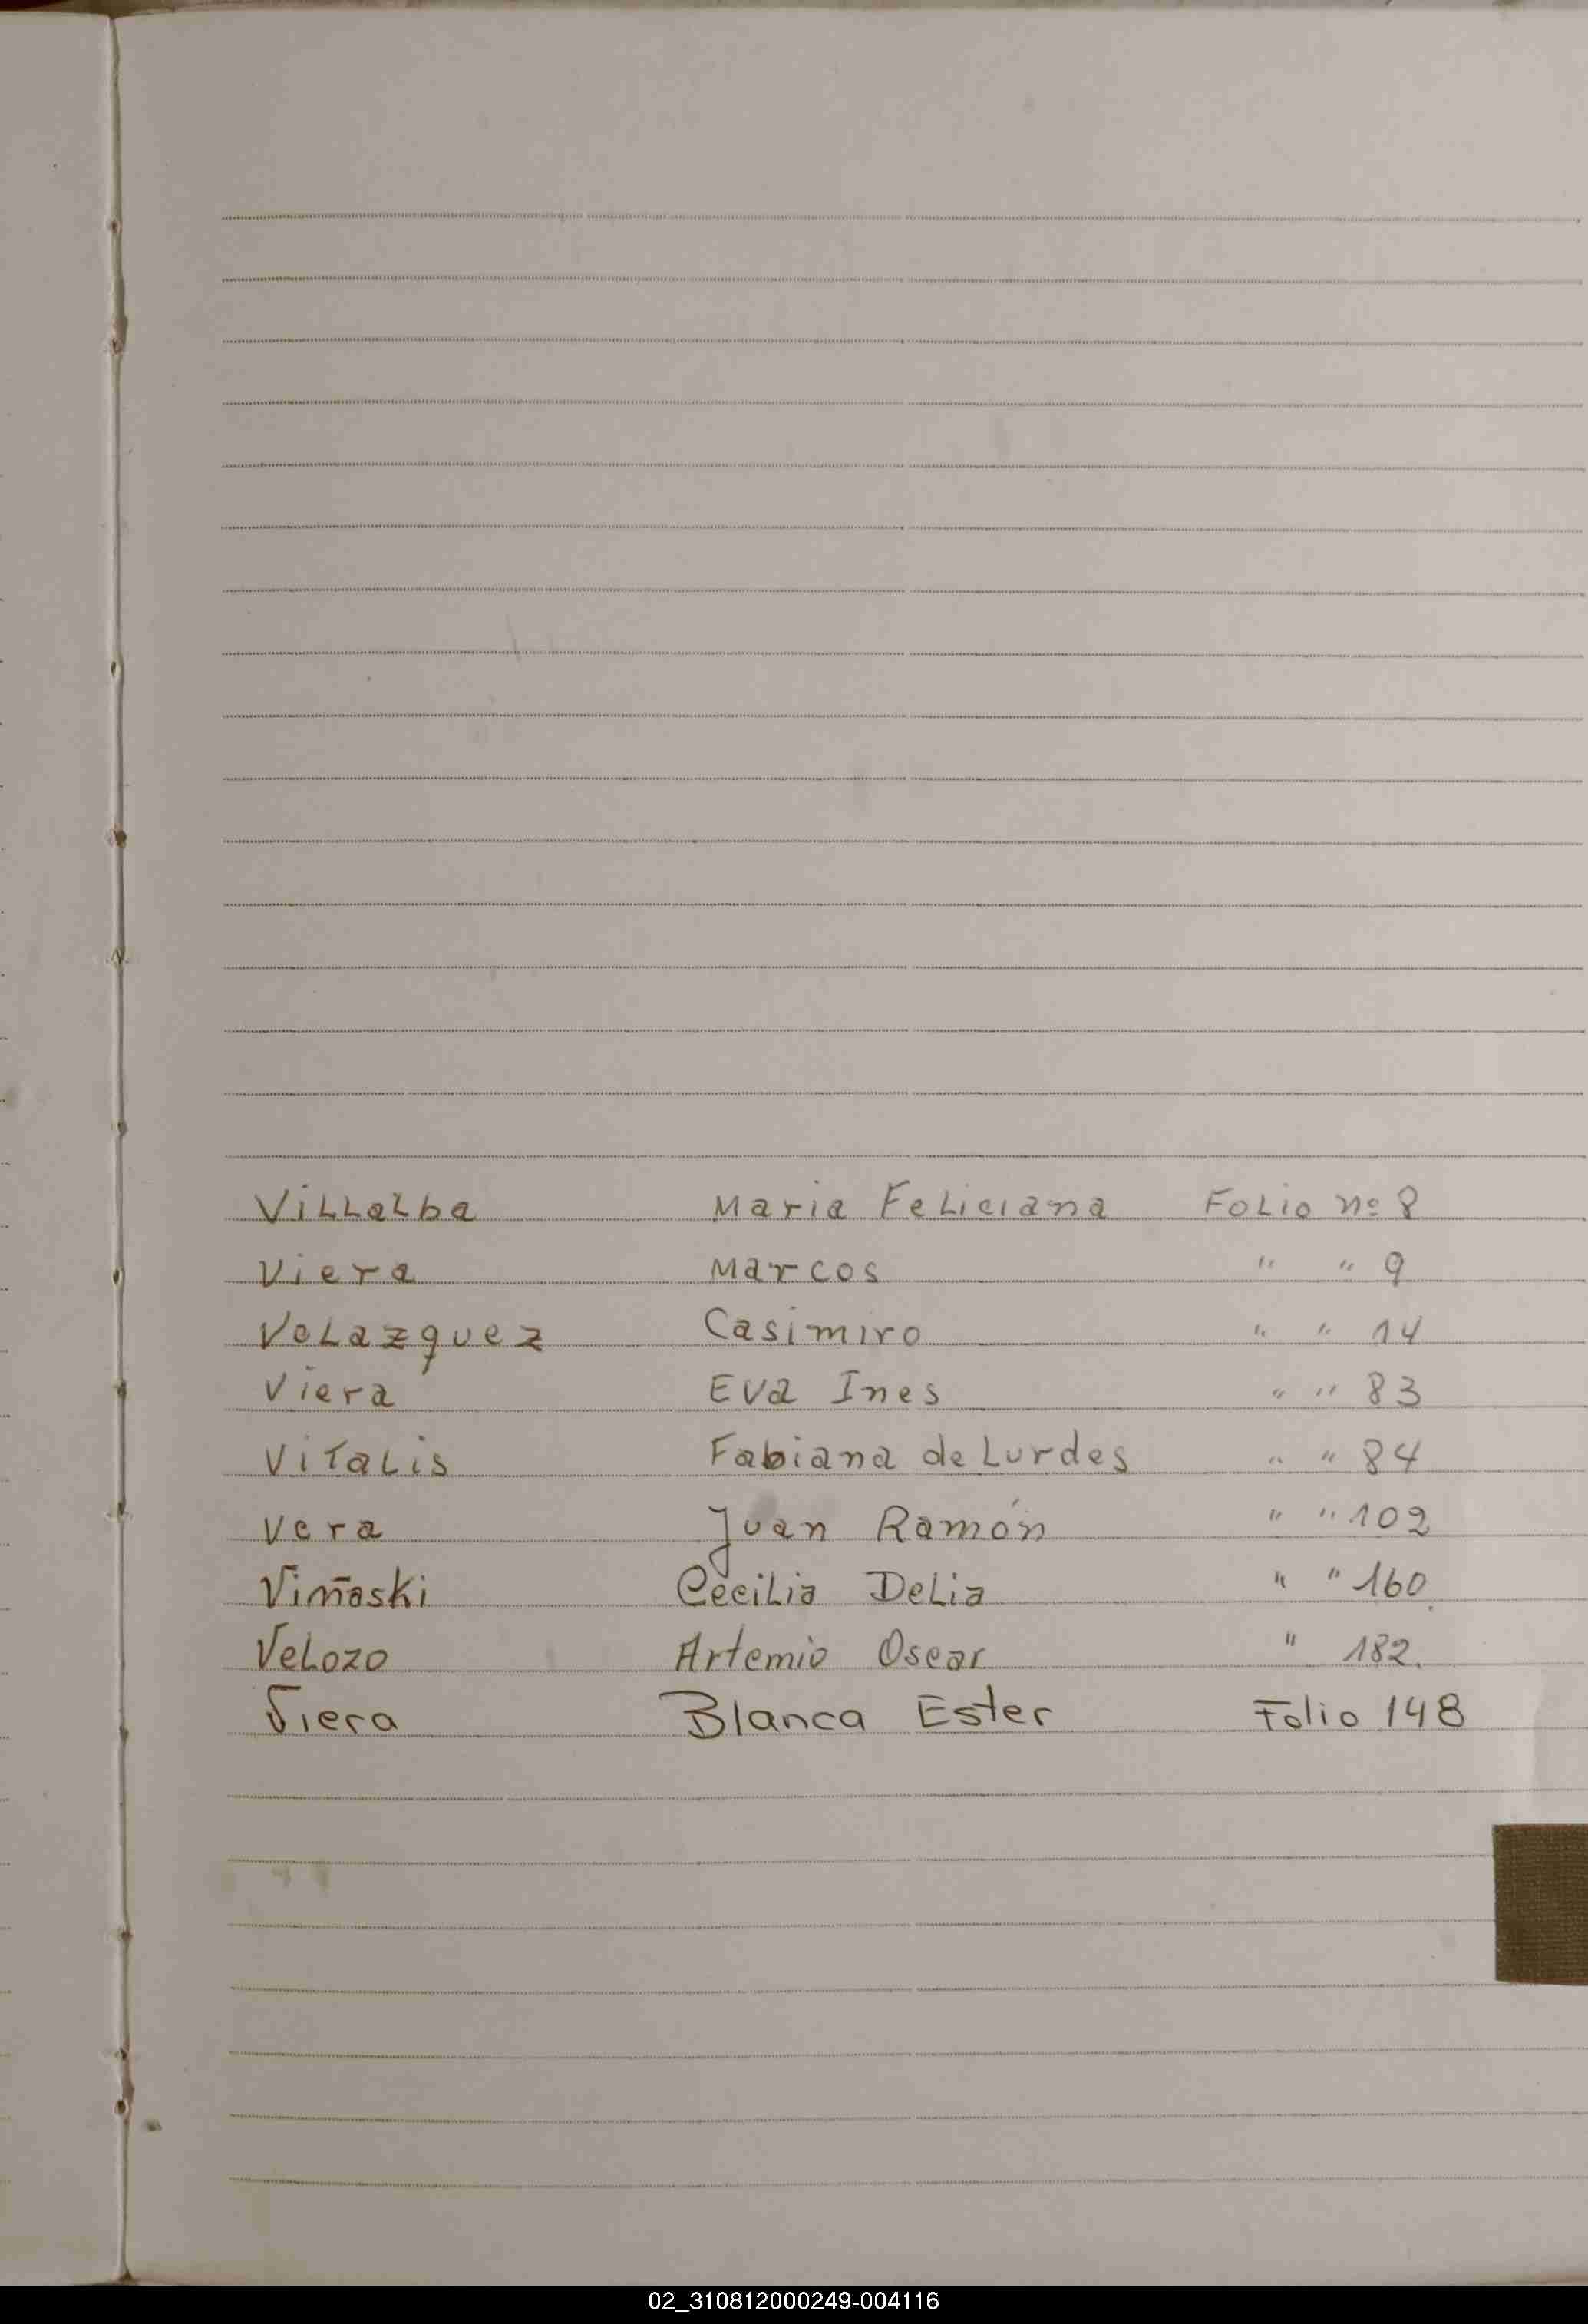 Villalba Maria Feliciana Folio nº 8
Viera Marcos " " 9
Velazquez Casimiro " " 14
Viera Eva Ines " " 83
Vitalis Fabiana de Lurdes " " 84
Vera Juan Ramón " " 102
Viñaski Cecilia Delia " " 160
Velozo Artemio Oscar " 182.
Viera Blanca Ester Folio 148
02_310812000249-004116